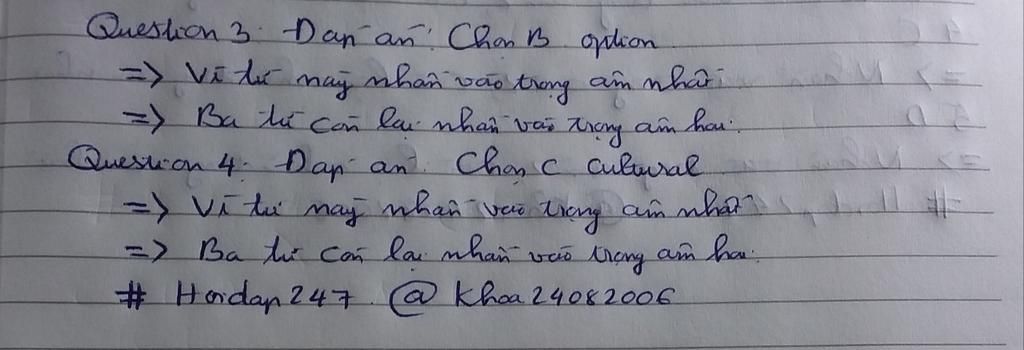 Question 3: Đáp án: Chọn B option
=> Vì từ này nhấn vào trọng âm nhất.
=> Ba từ còn lại nhấn vào trọng âm hai.
Question 4: Đáp án: Chọn C Cultural
=> Vì từ này nhấn vào trọng âm nhất.
=> Ba từ còn lại nhấn vào trọng âm hai.
# Hoidap247 @ Khoa24082006